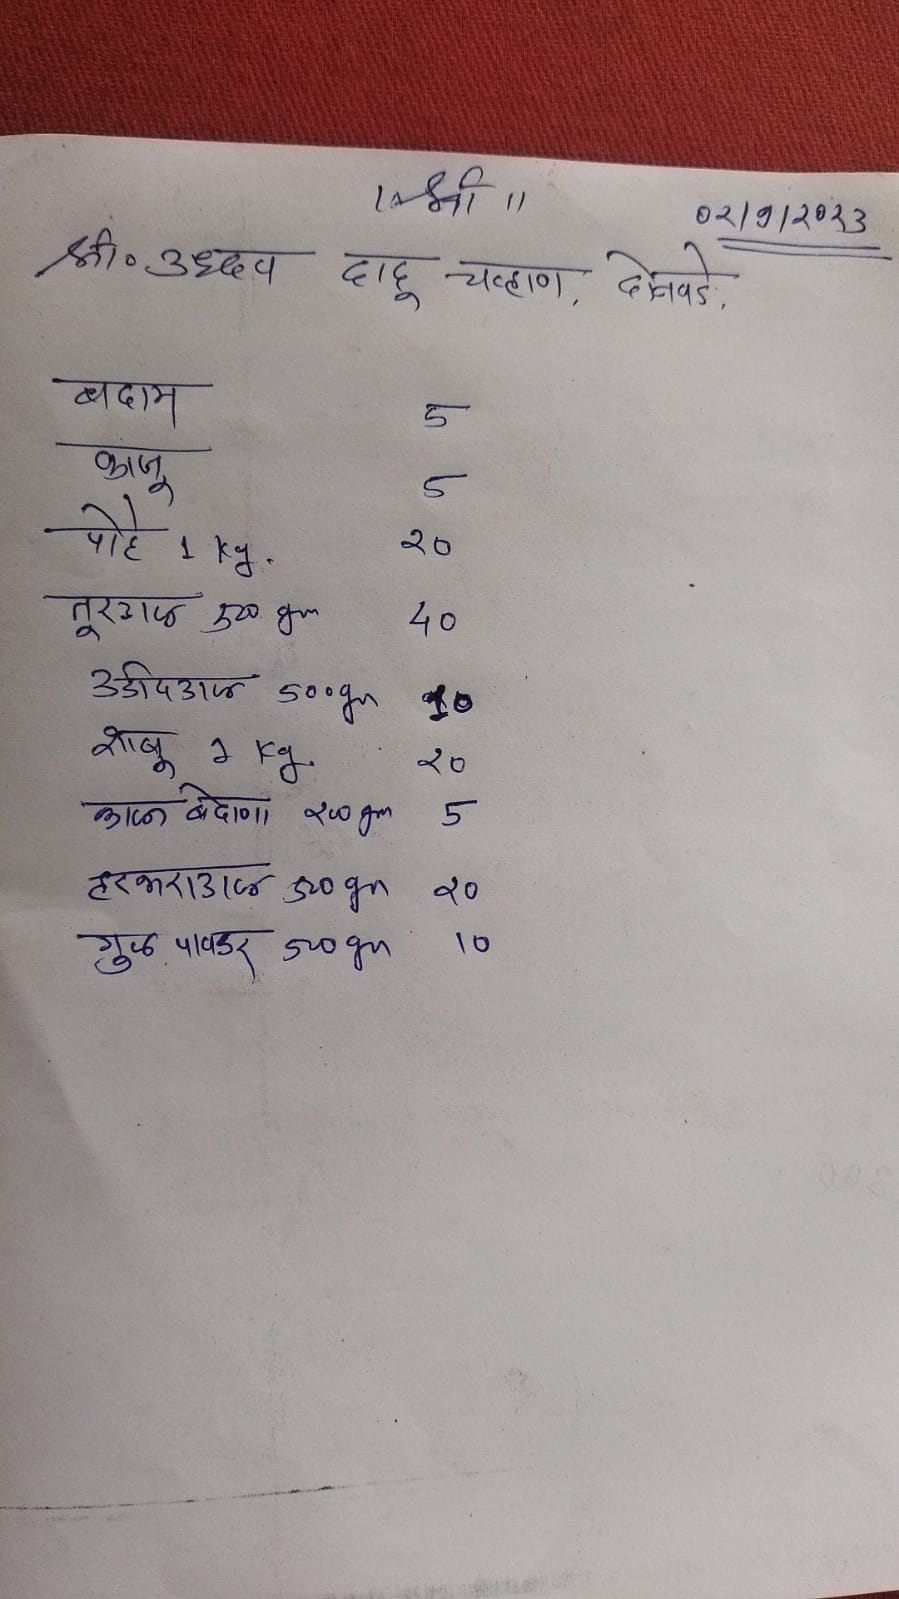 ॥ श्री ॥
02/9/2023
श्री. उध्दव दादू चव्हाण, दोनवडे.
बदाम 5
काजू 5
पोहे 1 kg. 20
तूरडाळ 500 gm 40
उडीदडाळ 500 gm 10
शाबू 1 kg. 20
काळे बेदाणा 200 gm 5
हरभराडाळ 500 gm 20
गुळ पावडर 500 gm 10